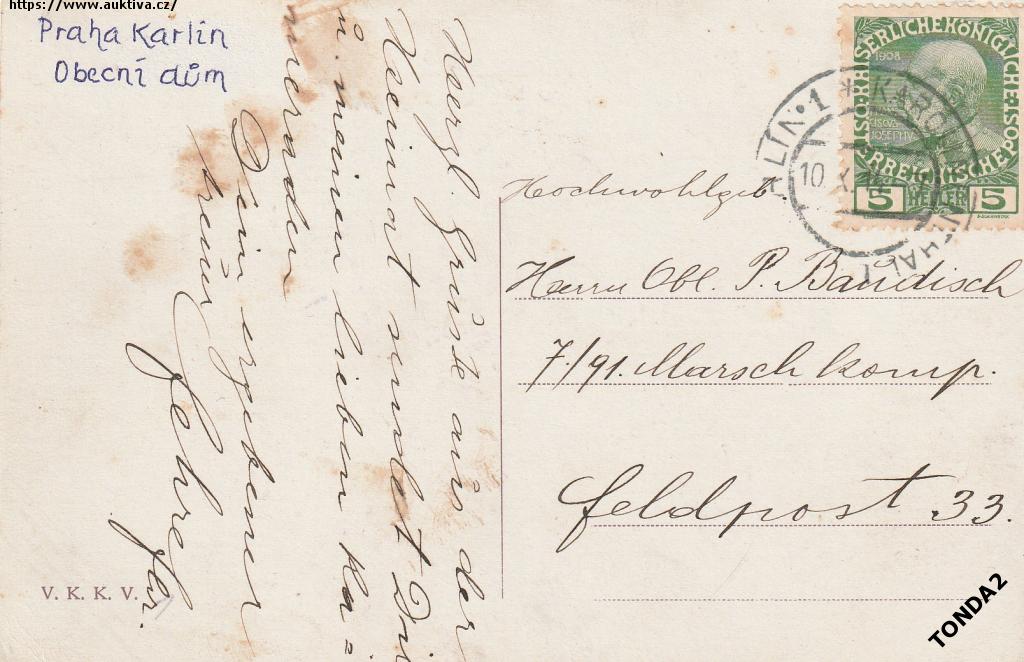 https://www.auktiva.cz/
Praha Karlín
Obecní dům
Herzl. Grüße aus der
Heimat sendet Dir
u. meinen lieben Ka=
meraden
Dein ergebener
treuer
V. K. K. V.
KAISERLICHE KÖNIGLICHE
ÖSTERREICHISCHE POST
1908
5 HELLER 5
KAROLINENTHAL 1
10 X
Hochwohlgeb.
Herrn Obl. P. Baudisch
7/91. Marsch komp.
Feldpost 33.
TONDA2